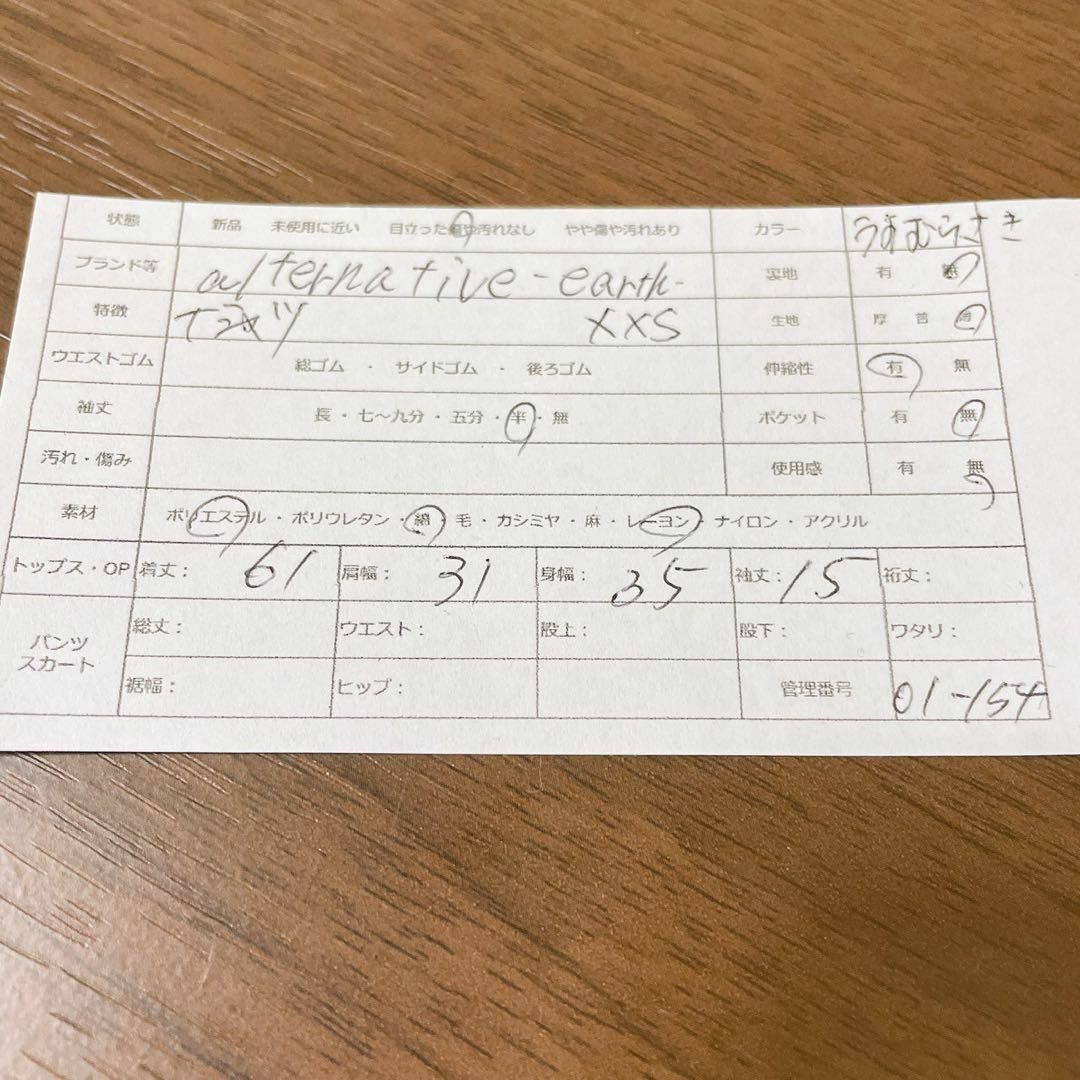 状態 新品 未使用に近い 目立った傷や汚れなし やや傷や汚れあり カラー うすむらさき
ブランド等 alternative-earth- 裏地 有 無
特徴 Tシャツ XXS 生地 厚 普 薄
ウエストゴム 総ゴム ・ サイドゴム ・ 後ろゴム 伸縮性 有 無
袖丈 長・七〜九分・五分・半・無 ポケット 有 無
汚れ・傷み 使用感 有 無
素材 ポリエステル・ポリウレタン・綿・毛・カシミヤ・麻・レーヨン・ナイロン・アクリル
トップス・OP 着丈: 61 肩幅: 31 身幅: 35 袖丈: 15 裄丈:
パンツ スカート 総丈: ウエスト: 股上: 股下: ワタリ:
裾幅: ヒップ: 管理番号 01-154